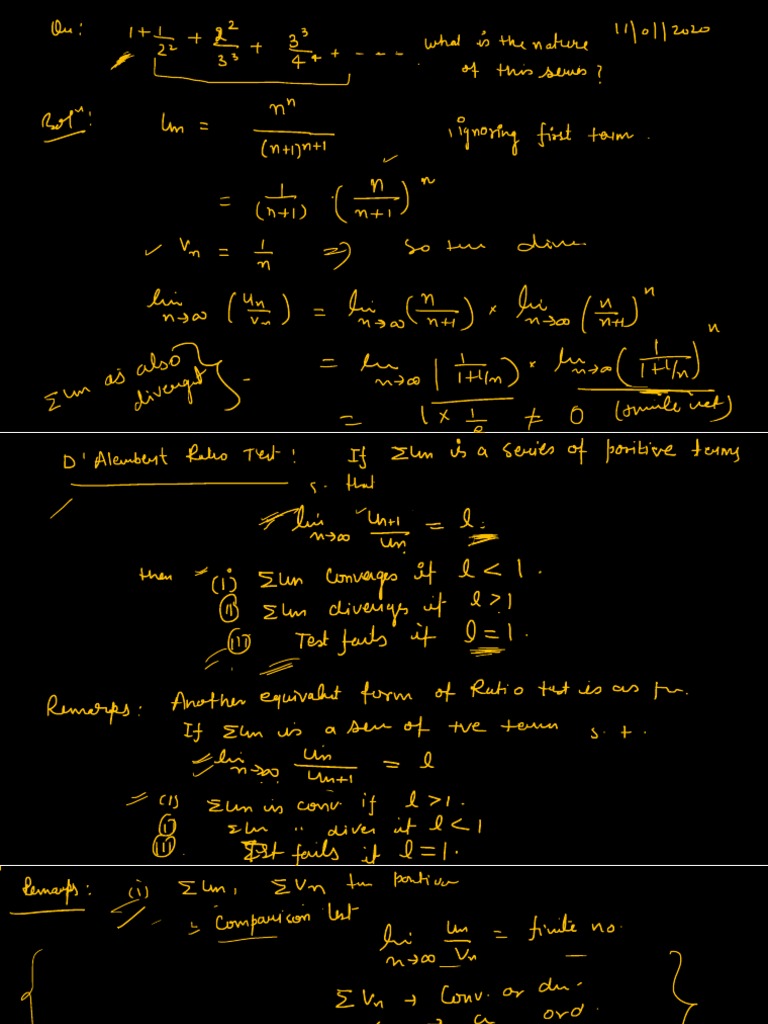 Qu: 1 + 1/2² + 2²/3³ + 3³/4⁴ + ---- . what is the nature of this series? 11/01/2020
Solⁿ: Un = nⁿ/(n+1)ⁿ⁺¹ , ignoring first term.
= 1/(n+1) · (n/n+1)ⁿ
✓ Vn = 1/n ⇒ so
lim n→∞ (Un/Vn) = lim n→∞ (n/n+1) × lim n→∞ (n/n+1)ⁿ
= lim n→∞ (1/1+1/n) × lim n→∞ (1/1+1/n)ⁿ
ΣUn is also divergent } -
= 1 × 1/e ≠ 0 (finite net)
D'Alembert Ratio Test: If ΣUn is a series of positive terms
s. that
lim n→∞ Un+1/Un = l.
then (i) ΣUn converges if l < 1.
(ii) ΣUn diverges if l > 1
(iii) Test fails if l = 1.
Remarks: Another equivalent form of Ratio test is as
If ΣUn is a of +ve term s. t.
lim n→∞ Un/Un+1 = l
(i) ΣUn is conv if l > 1.
(ii) ΣUn " diver if l < 1
(iii) Test fails if l = 1.
Remarks: (i) ΣUn, ΣVn positive
Comparison test
lim n→∞ Un/Vn = finite no.
ΣVn → Conv. or div.
ord.